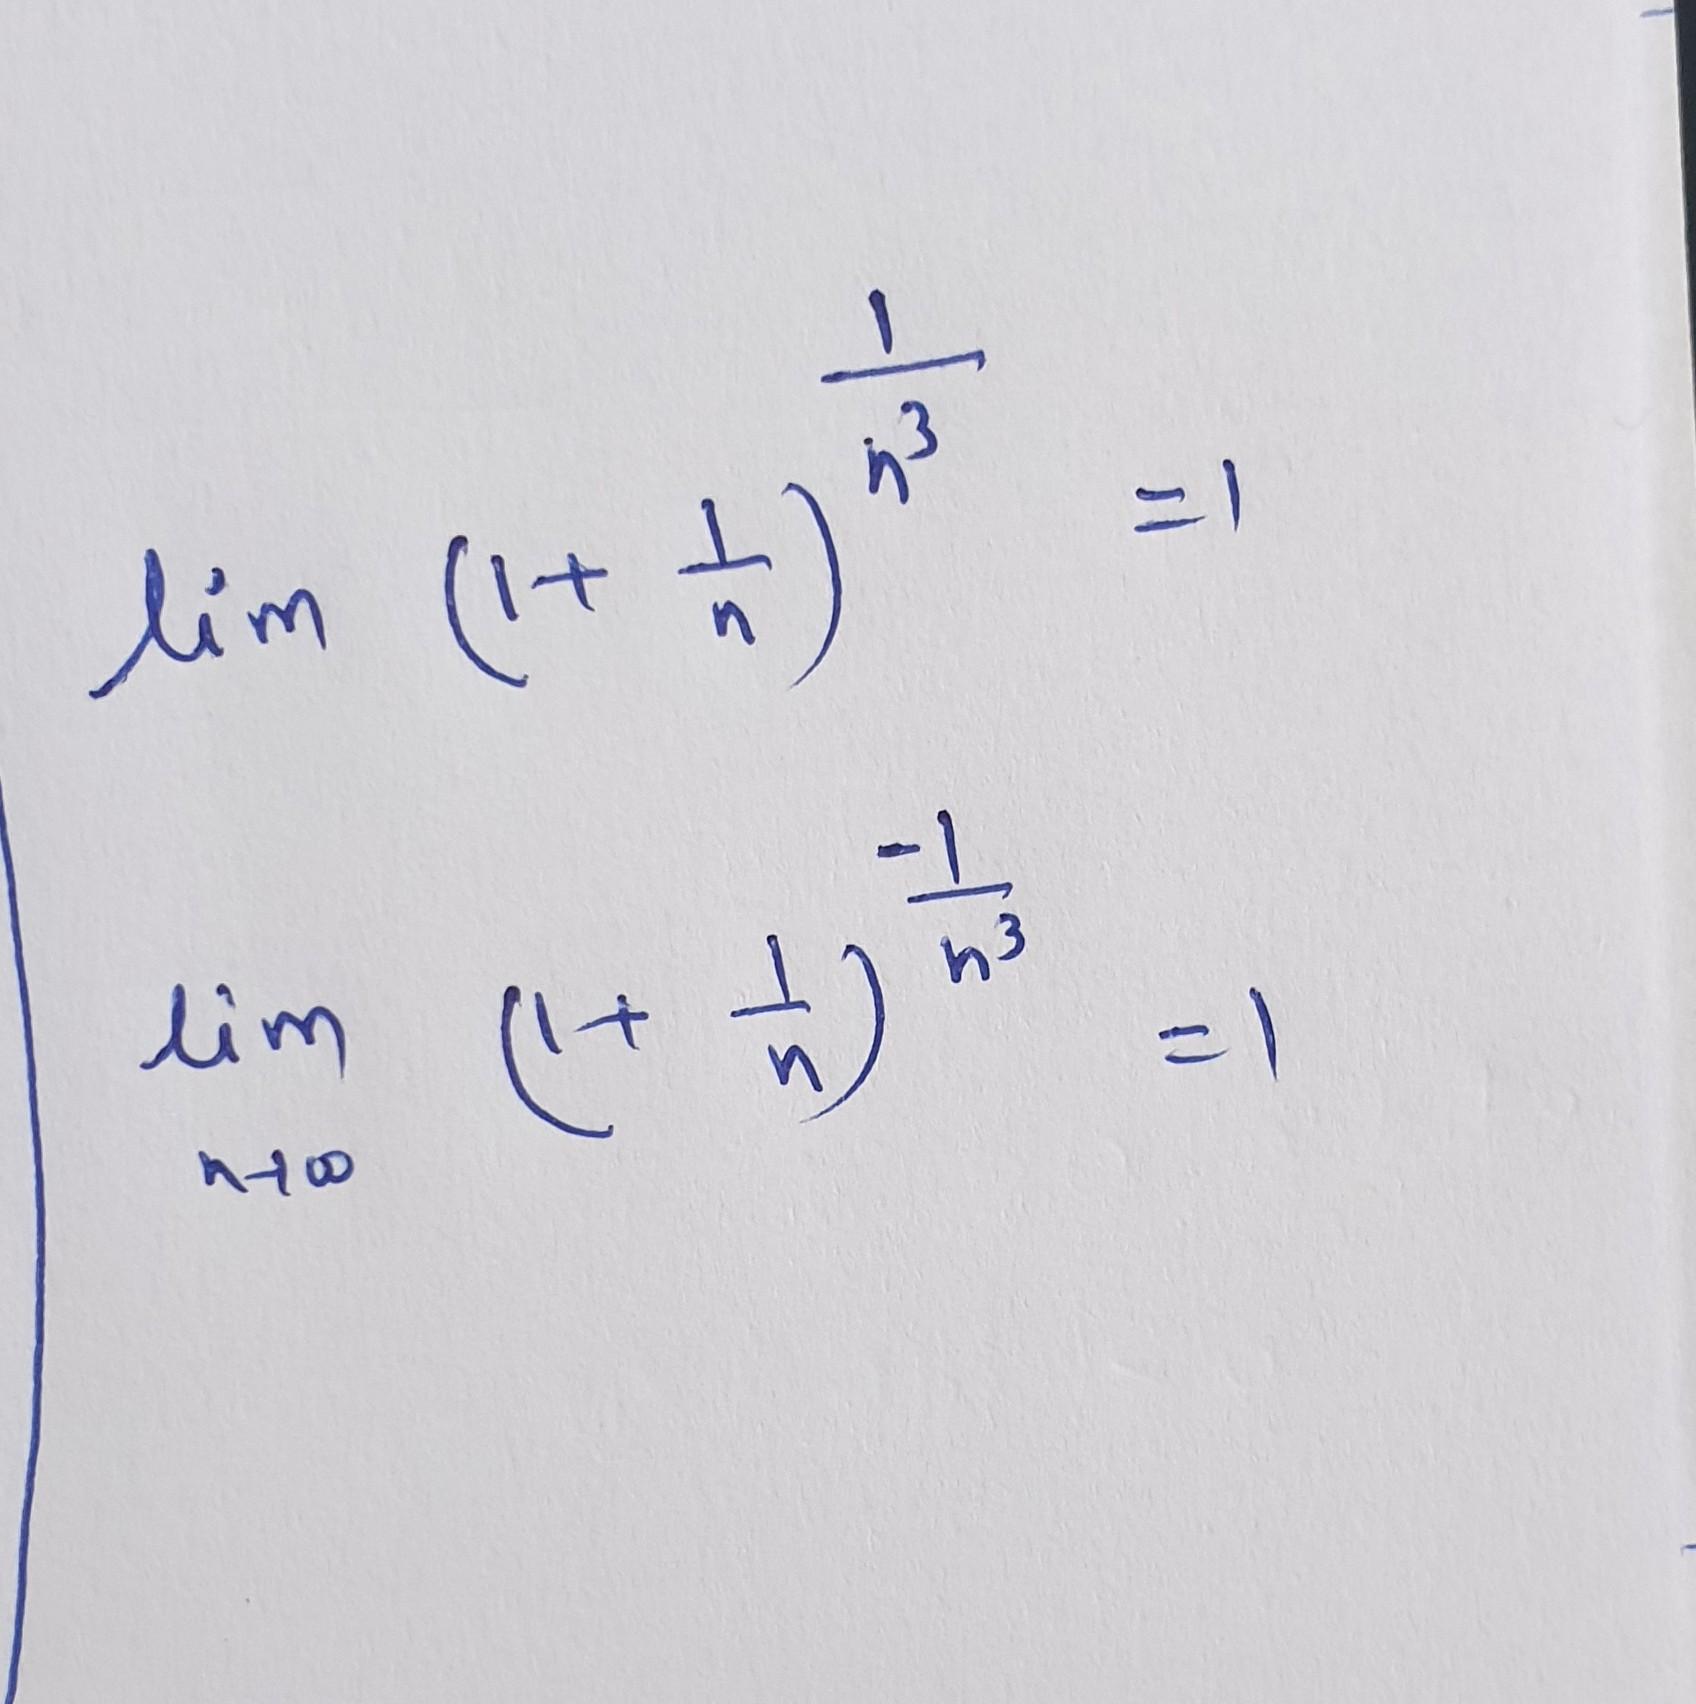 lim (1 + 1/n)^(1/n³) = 1
lim (1 + 1/n)^(-1/n³) = 1
n→∞